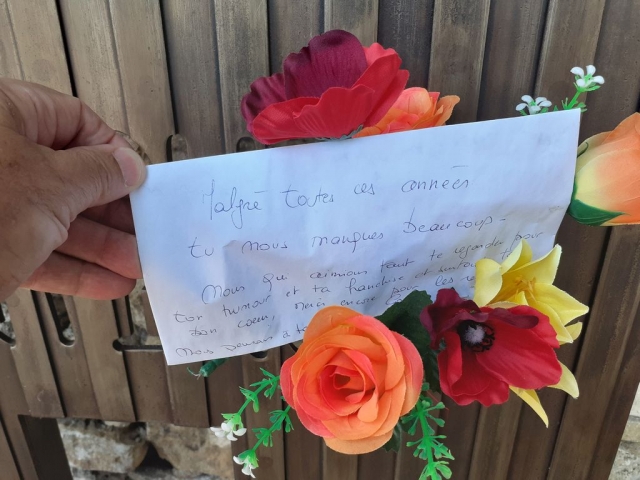 Malgré toutes ces années
tu nous manques beaucoup -
Nous qui aimions tant te regarder pour
ton humour et ta franchise et
bon coeur, merci encore pour les
Nous